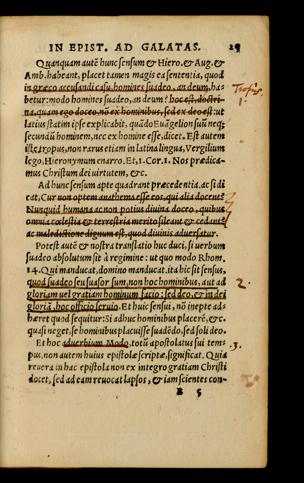 IN EPIST. AD GALATAS. 25
Quanquam autē hunc sensum & Hiero. & Aug. &
Amb. habeant, placet tamen magis ea sententia, quod
in græco accusandi casu, homines suadeo, an deum, ha-
betur: modo homines suadeo, an deum? hoc est, doctri-
na, quam ego doceo, nō ex hominibus, sed ex deo est: ut
latius statim ipse explicabit, quādo Euāgelion suū neq;
secundū hominem, nec ex homine esse, dicet. Est autem
iste tropus, non rarus etiam in latina lingua, Vergilium
lego, Hieronymum enarro. Et, 1. Cor. 1. Nos prædica-
mus Christum dei virtutem, &c.
Ad hunc sensum apte quadrant præcedentia, ac si di
cat, Cur non optem anathema esse eos, qui alia docent?
Nunquid humana ac non potius diuina doceo, quibus
omnia cœlestia & terrestria merito sileant & cedunt,
ac maledictione dignum est, quod diuinis aduersatur.
Potest autē & nostra translatio huc duci, si uerbum
suadeo absolutum sit à regimine: ut quo modo Rhom.
14. Qui manducat, domino manducat, ita hic sit sensus,
quod suadeo seu suasor sum, non hoc hominibus, aut ad
gloriam uel gratiam hominum facio: sed deo, & in dei
gloriā, hoc officio seruio. Et huic sensui, nō inepte ad-
hæret quod sequitur: Si adhuc hominibus placerē, &c.
quasi neget, se hominibus placuisse suadēdo, sed soli deo.
Et hoc aduerbium Modo, totū apostolatus sui tem
pus, non autem huius epistolæ scriptæ, significat. Quia
reuera in hac epistola non ex integro gratiam Christi
docet, sed ad eam reuocat lapsos, & iam scientes con-
B 5
Tropus.
1.
2.
3.